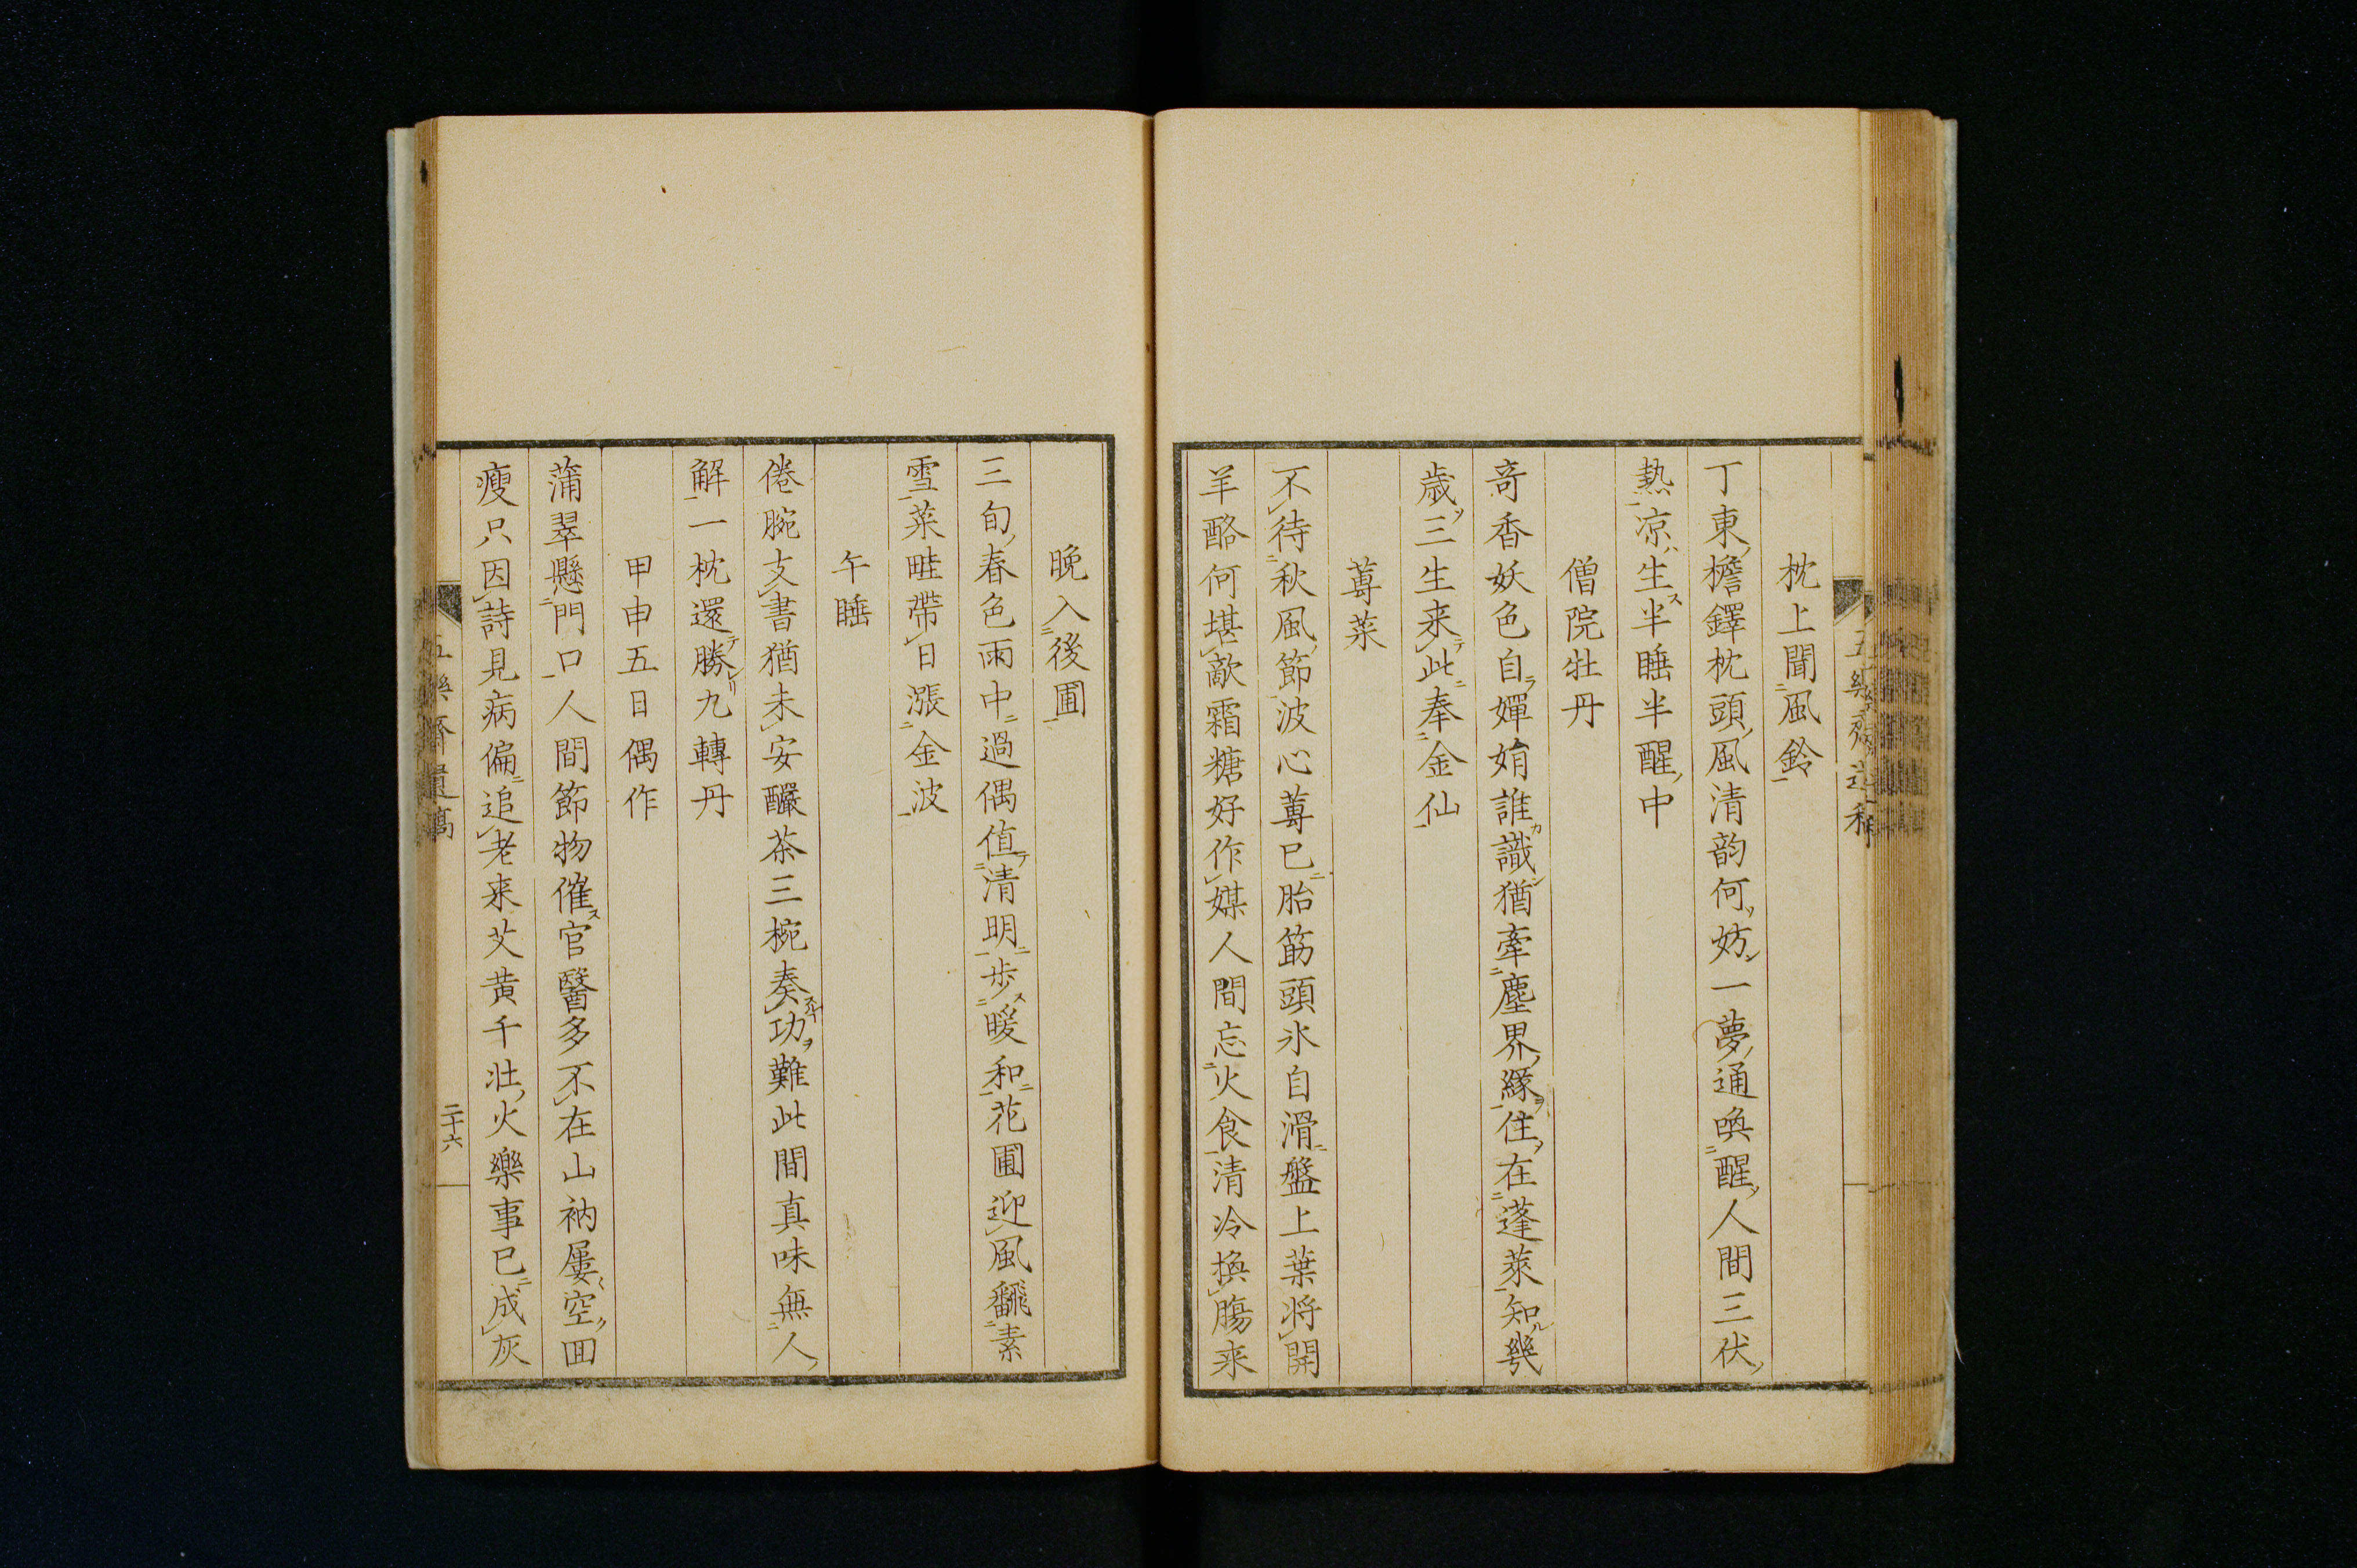 枕上聞風鈴
丁東檐鐸枕頭風清韵何妨一夢通喚醒人間三伏
熱凉生半睡半醒中
僧院牡丹
奇香妖色自嬋娟誰識猶牽塵界縁住在蓬萊知幾
歳三生来此奉金仙
蓴菜
不待秋風節波心蓴已胎筯頭氷自滑盤上葉将開
羊酪何堪敵霜糖好作媒人間忘火食清冷換腸来
晩入後圃
三旬春色雨中過偶値清明歩暖和花圃迎風飜素
雪菜畦帶日漲金波
午睡
倦腕支書猶未安釅茶三椀奏功難此間真味無人
解一枕還勝九轉丹
甲申五日偶作
蒲翠懸門口人間節物催官醫多不在山衲屢空囬
瘦只因詩見病偏追老来艾黄千壮火樂事已成灰
五樂齋遺稿
二十六